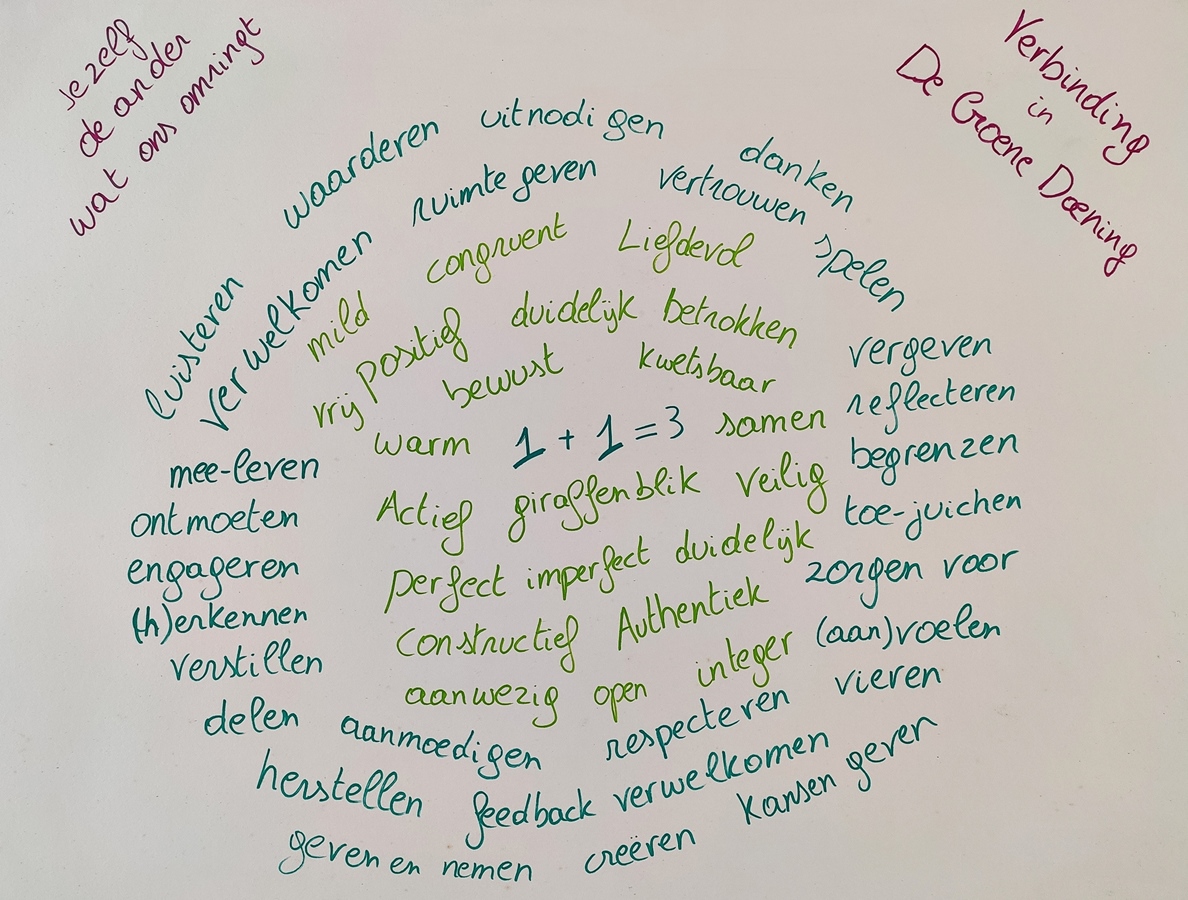 Je zelf
de ander
wat ons omringt
Verbinding
in
De Groene Dœning
waarderen uitnodigen danken
luisteren verwelkomen ruimte geven vertrouwen spelen
mild congruent Liefdevol
vrij positief duidelijk betrokken
bewust kwetsbaar
warm 1 + 1 = 3 samen
Actief giraffenblik veilig
perfect imperfect duidelijk
constructief Authentiek
aanwezig open integer
vergeven
reflecteren
begrenzen
toe-juichen
zorgen voor
(aan)voelen
vieren
mee-leven
ontmoeten
engageren
(h)erkennen
verstillen
delen aanmoedigen respecteren
herstellen feedback verwelkomen kansen geven
geven en nemen creëren